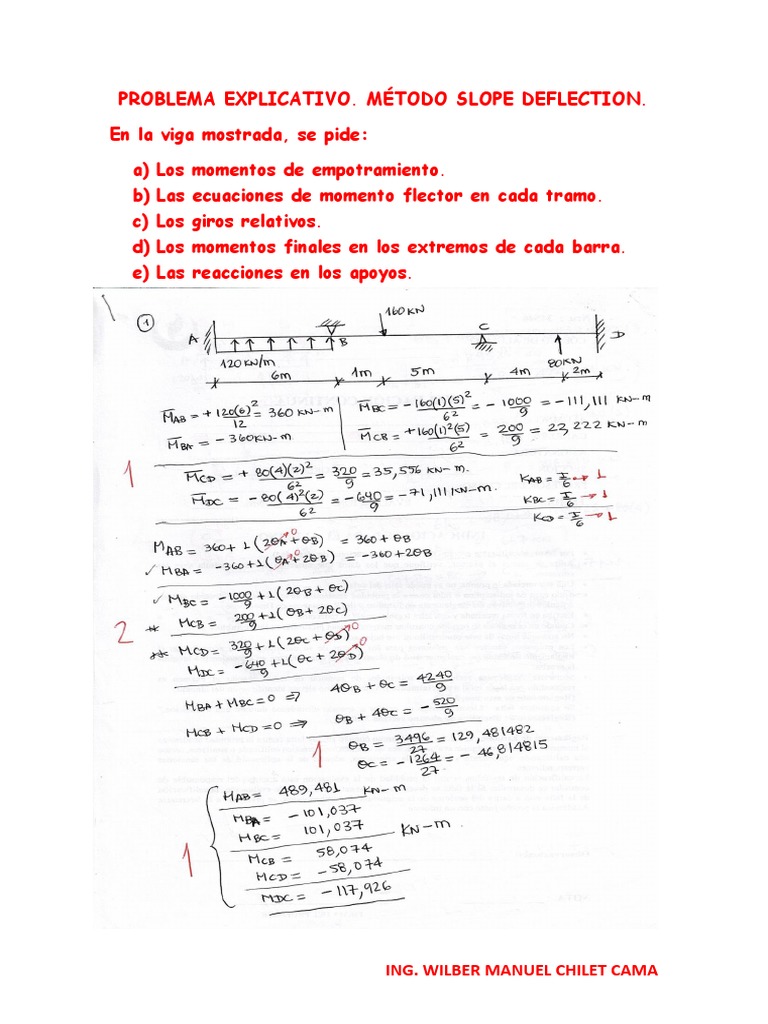 PROBLEMA EXPLICATIVO. MÉTODO SLOPE DEFLECTION.
En la viga mostrada, se pide:
a) Los momentos de empotramiento.
b) Las ecuaciones de momento flector en cada tramo.
c) Los giros relativos.
d) Los momentos finales en los extremos de cada barra.
e) Las reacciones en los apoyos.
1
160KN
A B C D
120 KN/m 80KN
6m 1m 5m 4m 2m
M̅AB = +120(6)²/12 = 360 KN-m
M̅BA = -360KN-m
M̅BC = -160(1)(5)²/6² = -1000/9 = -111,111 KN-m
M̅CB = +160(1)²(5)/6² = 200/9 = 22,222 KN-m
1
M̅CD = +80(4)(2)²/6² = 320/9 = 35,556 KN-m.
M̅DC = -80(4)²(2)/6² = -640/9 = -71,111KN-m.
KAB = I/6 → 1
KBC = I/6 → 1
KCD = I/6 → 1
MAB = 360+1(2θA+θB) = 360+θB
0
✓ MBA = -360+1(θA+2θB) = -360+2θB
0
✓ MBC = -1000/9 +1(2θB+θC)
2
** MCB = 200/9 +1(θB+2θC)
** MCD = 320/9 +1(2θC+θD)
0
MDC = -640/9 +1(θC+2θD)
0
MBA+MBC=0 ⇒ 4θB+θC = 4240/9
MCB+MCD=0 ⇒ θB+4θC = -520/9
1
θB = 3496/27 = 129,481482
θC = -1264/27 = -46,814815
MAB = 489,481 KN-m
MBA = -101,037
MBC = 101,037
KN-m.
1
MCB = 58,074
MCD = -58,074
MDC = -117,926
ING. WILBER MANUEL CHILET CAMA